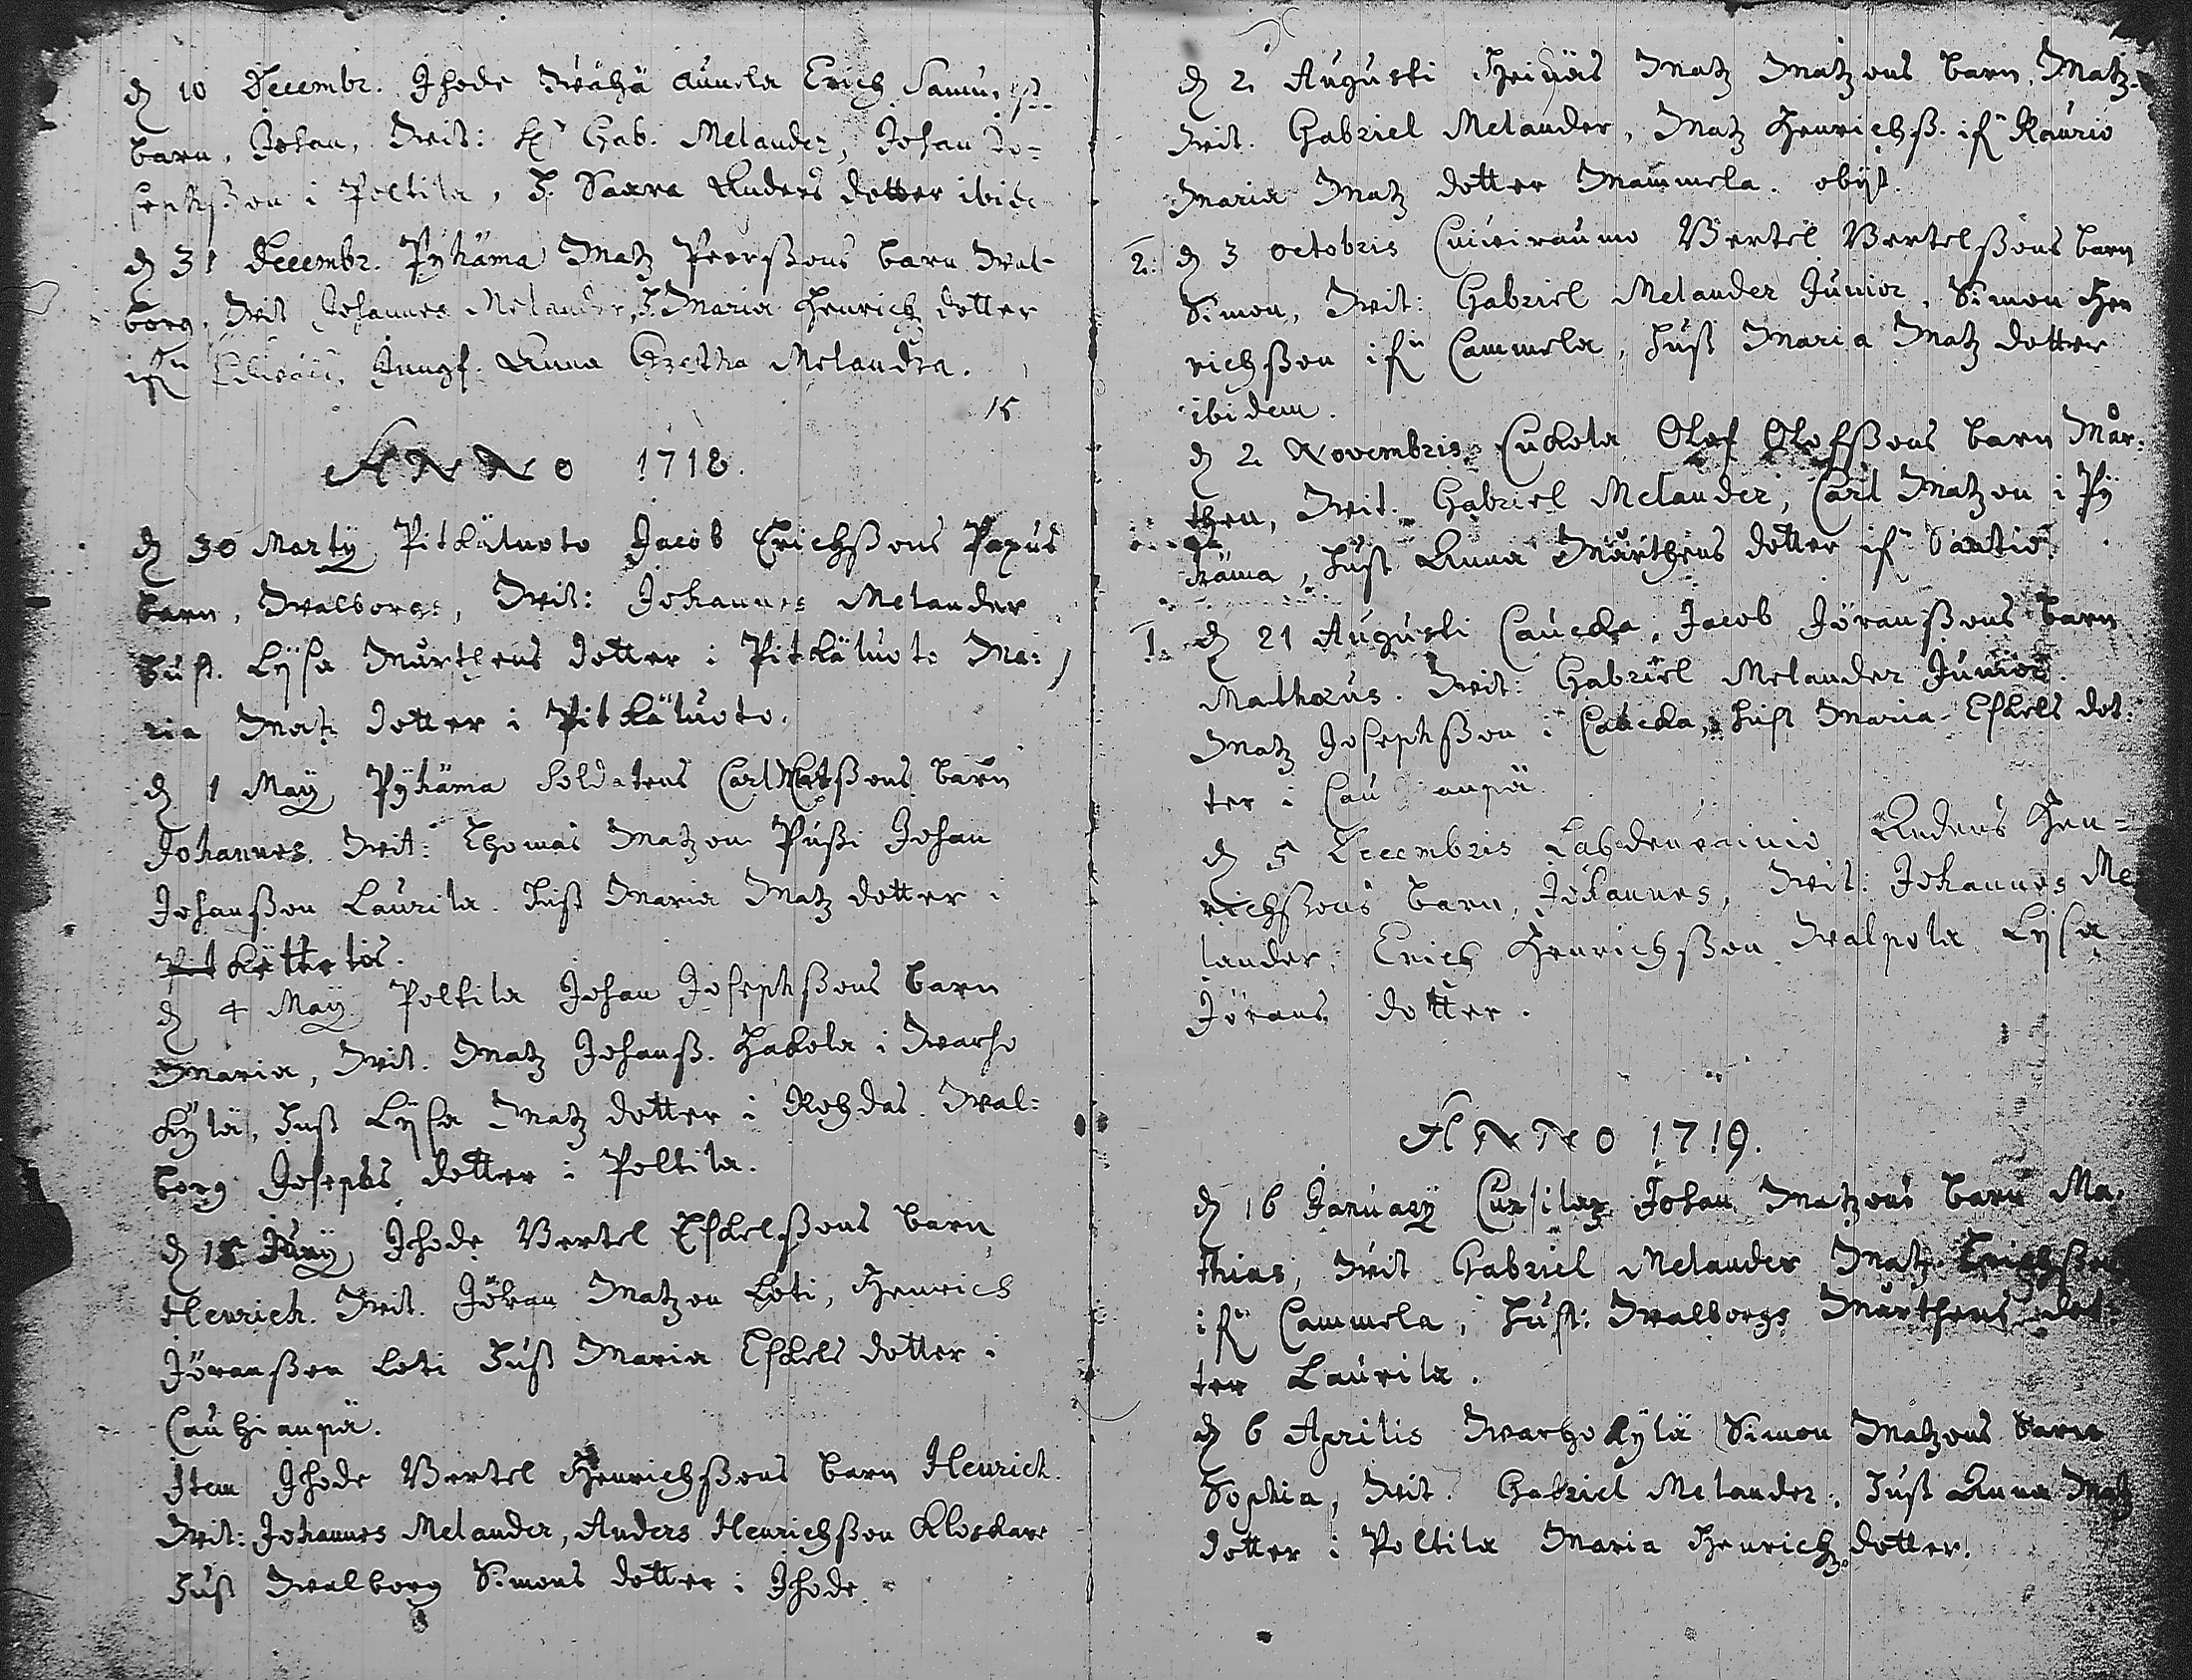 d 10 Decembr. Ihode Wähä aunela Erich Samu. ß.
barn, Johan, Wit: H Gab. Melander, Johan Jo=
sephßon i Poltila, H. Saara Anders dotter ibid
d 31 Decembr. Pyhäma Matz Peerßons barn Wal-
borg, Wit Johannes Melander, H. Maria Henrich dotter
ifr Jungf. Anna Gretha Melandra.
15
ANNO 1718.
d 30 Martÿ Pitkäluoto Jacob Erichßons Papus
barn, Walborg:, Wit: Johannes Melander
hust. Lÿsa Mårthens dotter i Pitkäluoto Ma:
ria Matz dotter i Pitkäluoto.
d 1 Maÿ Pÿhäma Soldatens Carl Matßons barn
Johannes. Wit: Thomas Matzon Pußi Johan
Johanßon Laurila. Hust Maria Matz dotter i
Kättelös.
d 4 Maÿ Poltila Johan Josephßons barn
Maria, Wit. Matz Johanß. Hakola i Warho
kÿlä, Hust Lÿsa Matz dotter i Rohdas. Wal:
borg Josephs dotter i Poltila.
d 15 Junÿ Ihode Bertel Eskelßons barn
Henrich. Wit. Jöran Matzon Loti, Henrich
Jöranßon Loti Hust Maria Eskels dotter i
Cauhianpä.
Item Ihode Bertel Henrichßons barn Henrich.
Wit: Johannes Melander, Anders Henrichßon Klockare
Hust Walborg Simons dotter i Ihode.
d 2 Augusti Heinäs Matz Matzons barn, Matz.
Wit. Gabriel Melander, Matz Henrichß. ifr Raurio
Maria Matz dotter Mammela. obÿt.
2: d 3 octobris Cuiviraumo Bertel Bertelßons barn
Simon, Wit: Gabriel Melander Junior, Simon Hen
richßon ifr Cammela, Hust Maria Matz dotter
ibidem.
d 2 Novembris Cuckola Olof Olofßons barn Mår:
then, Wit. Gabriel Melander, Carl Matzon i Pÿ
häma, Hust Anna Mårthens dotter ifr Santio
1. d 21 Augusti Caucka, Jacob Jöranßons barn
Mathæus. Wit: Gabriel Melander Junior.
Matz Josephßon i Caucka, Hust Maria Eskels dot:
ter i Cau anpä
d 5 Decembris Anders Hen=
richßons barn, Johannes, Wit: Johannes Me
lander, Erich Henrichßon Walpola Lÿsa
Jörans dotter.
ANNO 1719.
d 16 Januarÿ Cursila Johan Matzons barn Ma.
thias, Wit Gabriel Melander Matz Erichßon
ifr Cammela, Hust: Walborg Mårthens dot:
ter Laurila.
d 6 Aprilis Warhokÿlä Simon Matzons barn
Sophia, Wit. Gabriel Melander, Hust Anna Matz
dotter i Poltila Maria Henrichz dotter.